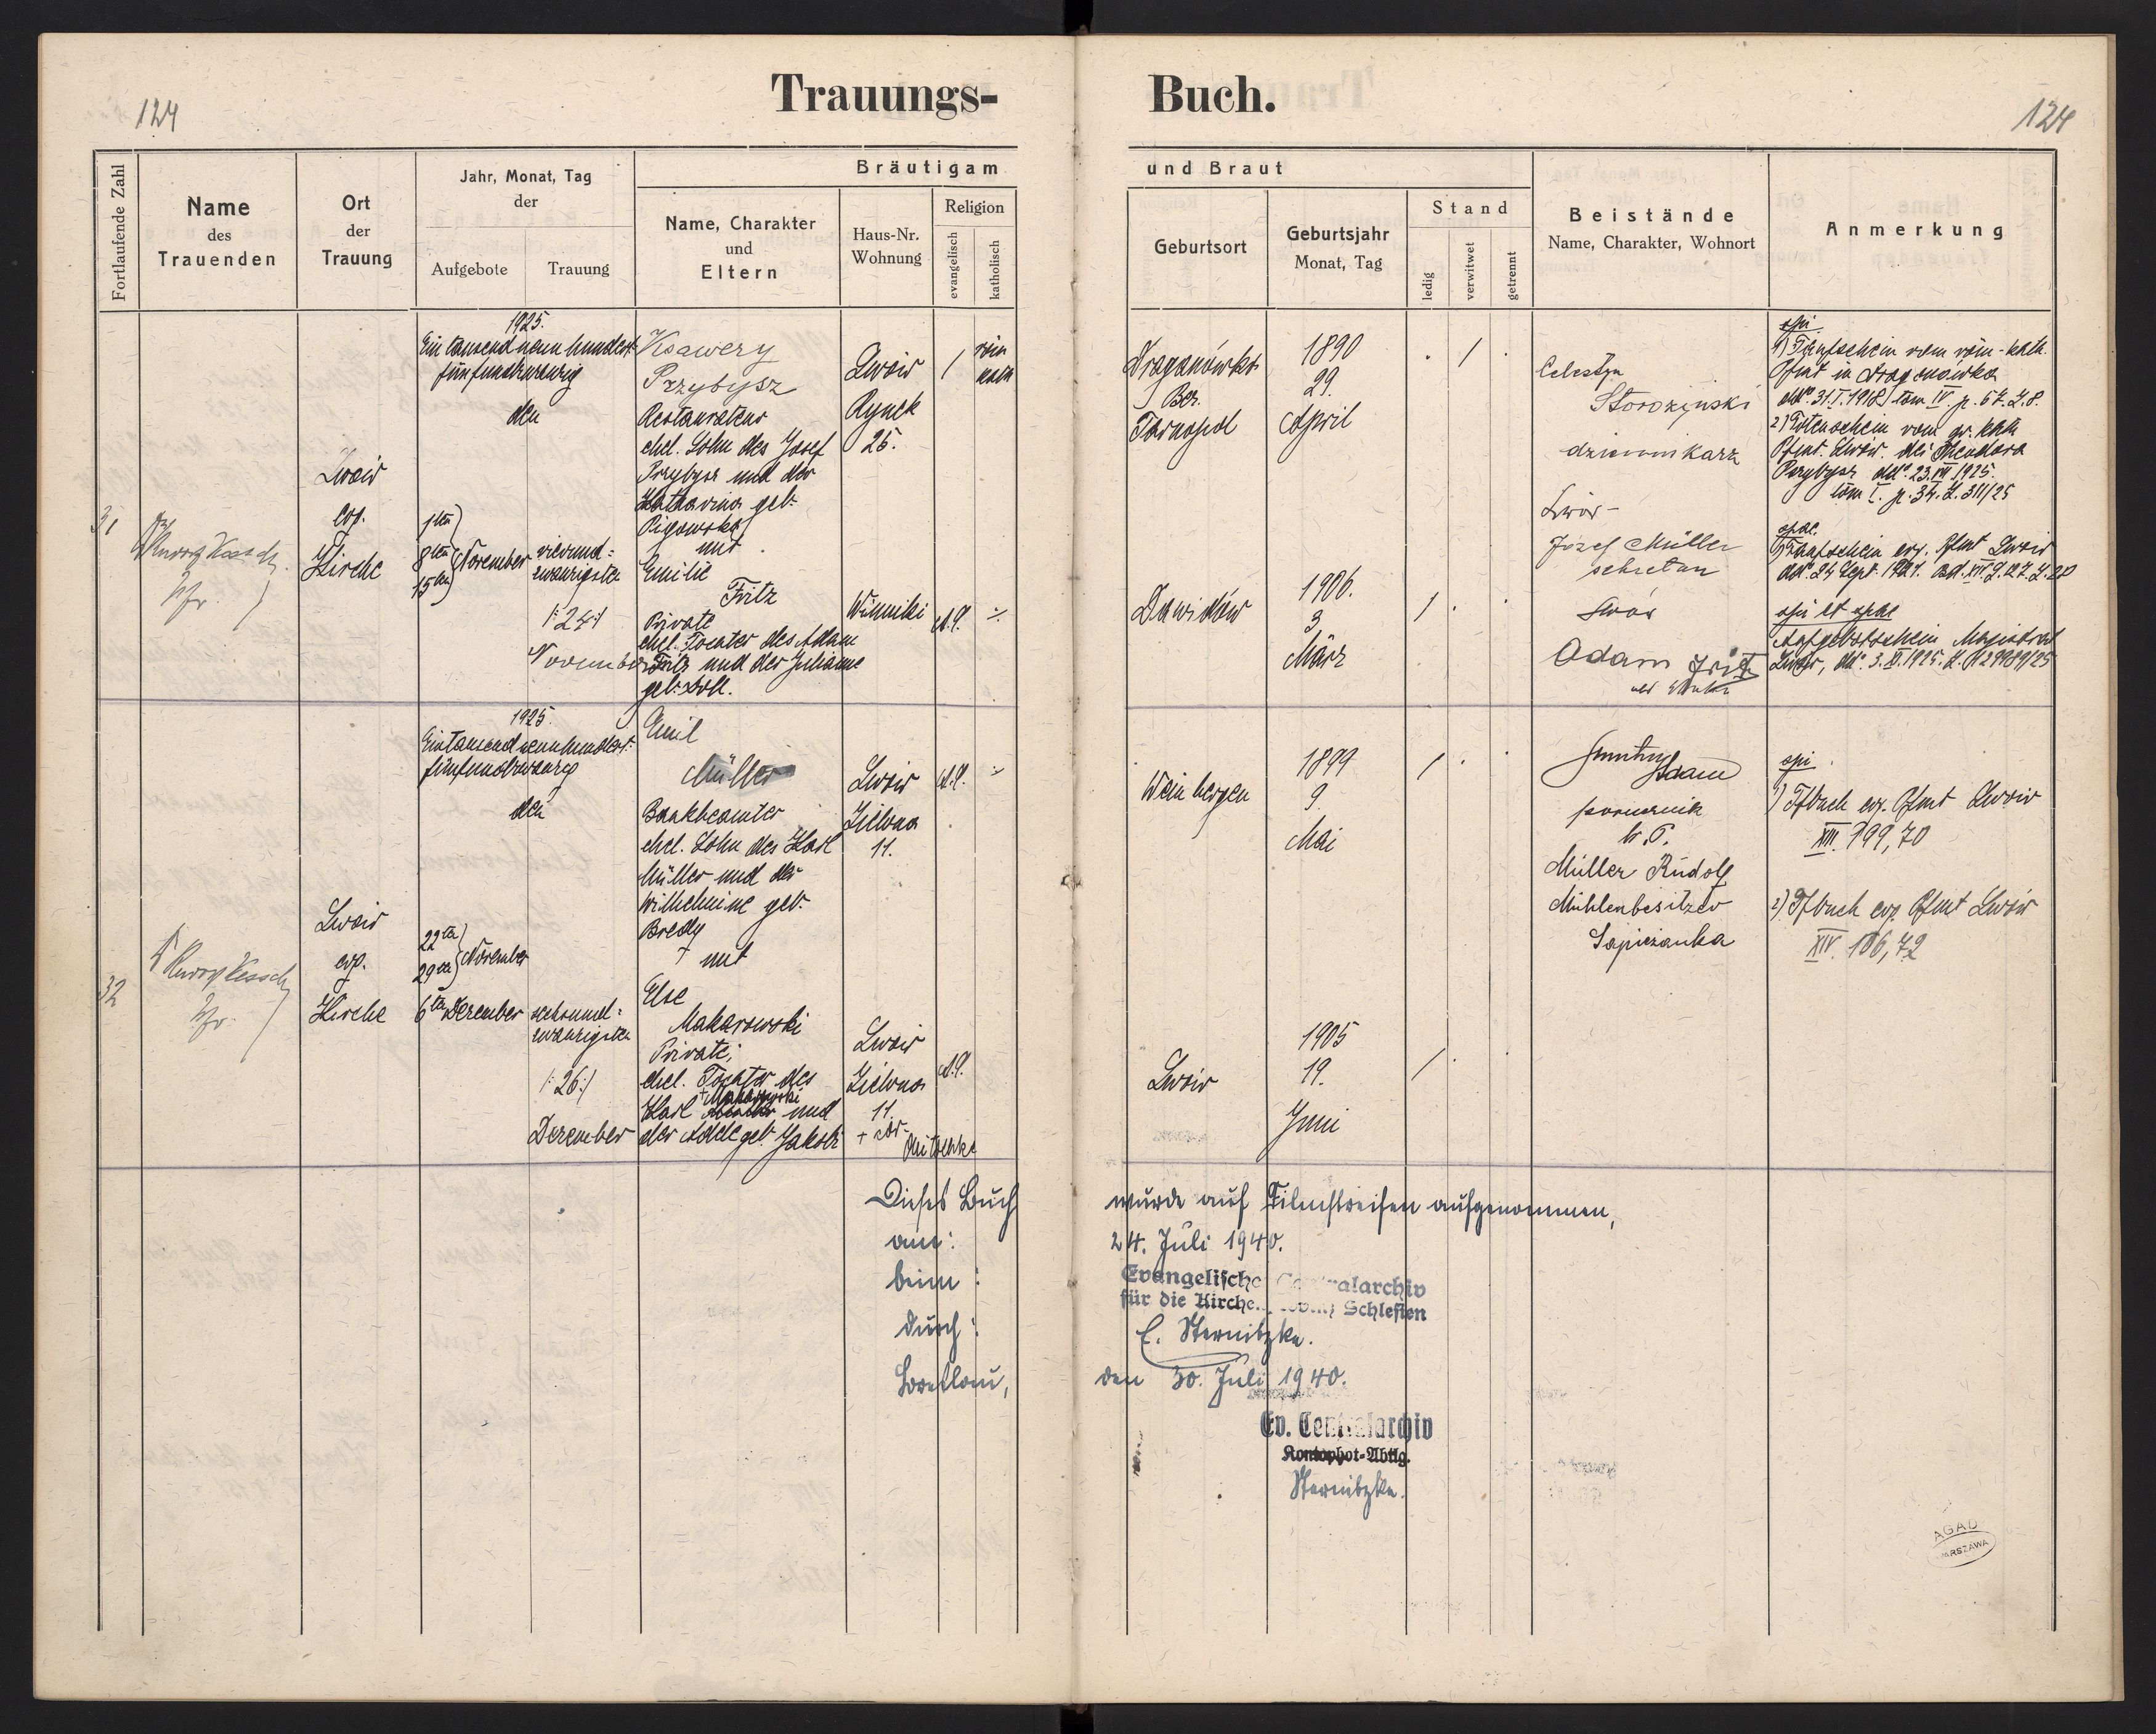 124
Trauungs-
Buch.
124
Fortlaufende Zahl
Name
des
Trauenden
Ort
der
Trauung
Jahr, Monat, Tag
der
Aufgebote
Trauung
Bräutigam
Name, Charakter
und
Eltern
Haus-Nr.
Wohnung
Religion
evangelisch
katholisch
und Braut
Geburtsort
Geburtsjahr
Monat, Tag
Stand
ledig
verwitwet
getrennt
Beistände
Name, Charakter, Wohnort
Anmerkung
31
Lwów
ev.
Kirche
1925.
Ein tausend neun hundert
fünfundzwanzig
den
1ten
8ten November
15ten
vierund=
zwanzigsten
/:24:/
November
Ksawery
Przybysz
Restaurateur
ehel. Sohn des Josef
Przybysz und der
Katharina geb.
Pigowska
mit
Emilie
Fritz
Private
ehel. Tochter des Adam
Fritz und der Juliane
geb. Doll.
Lwów
Rynek
25.
/
röm
kath
Winniki
A.C.
Draganówka
Bez.
Tarnopol
1890
29.
April
/
Dawidów
1906.
3
März
/
Celestyn
Storozinski
dziennikarz
Lwów-
Józef Müller
sekretarz
Lwów
Adam Fritz
spi
1) Taufschein vom röm-kath.
Pfmt in Draganówka
dd. 31.I.1918 tom IV. p. 67. Z. 8.
2) Totenschein vom gr. kath
Pfmt. Lwów. der Theodora
Przybysz dd. 23.VII 1925.
tom I. p. 34. Z. 311/25
spae.
Taufschein ev. Pfmt Lwów
dd. 24 Sept. 1921.
spi et spae
Aufgebotschein Magistrat
Lwów, dd. 3.
32
Lwów
evg.
Kirche
1925.
Eintausend neunhundert
fünfundzwanzig
den
22ten
29ten November
6ten Dezember
sechsund=
zwanzigsten
/:26:/
Dezember
Emil
Müller
Bankbeamter
ehel. Sohn des Karl
Müller und der
Wilhelmine geb.
Bredy
mit
Else
Makarowski
Private,
ehel. Tochter des
Makarowski
Karl und
der Adele geb. Jakobi
Lwów
Zielona
11.
A.C.
Lwów
Zielona
11.
A.C.
Weinbergen
1899
9.
Mai
/
Lwów
1905
19.
Juni
/
Adam
porucznik
W.P.
Müller Rudolf
Mühlenbesitzer
Sapieżanka
spi
1) Tfbuch ev. Pfmt Lwów
XIII. 199, 70
2) Tfbuch evg. Pfmt Lwów
XIV. 106, 72
Dieses Buch wurde auf Filmstreifen aufgenommen,
am: 24. Juli 1940.
beim: Evangelische Centralarchiv
für die Kirchenprovinz Schlesien
durch: E. Sternitzke.
Breslau, den 30. Juli 1940.
Ev. Centralarchiv
Kontophot-Abtlg.
Sternitzke.
AGAD
WARSZAWA